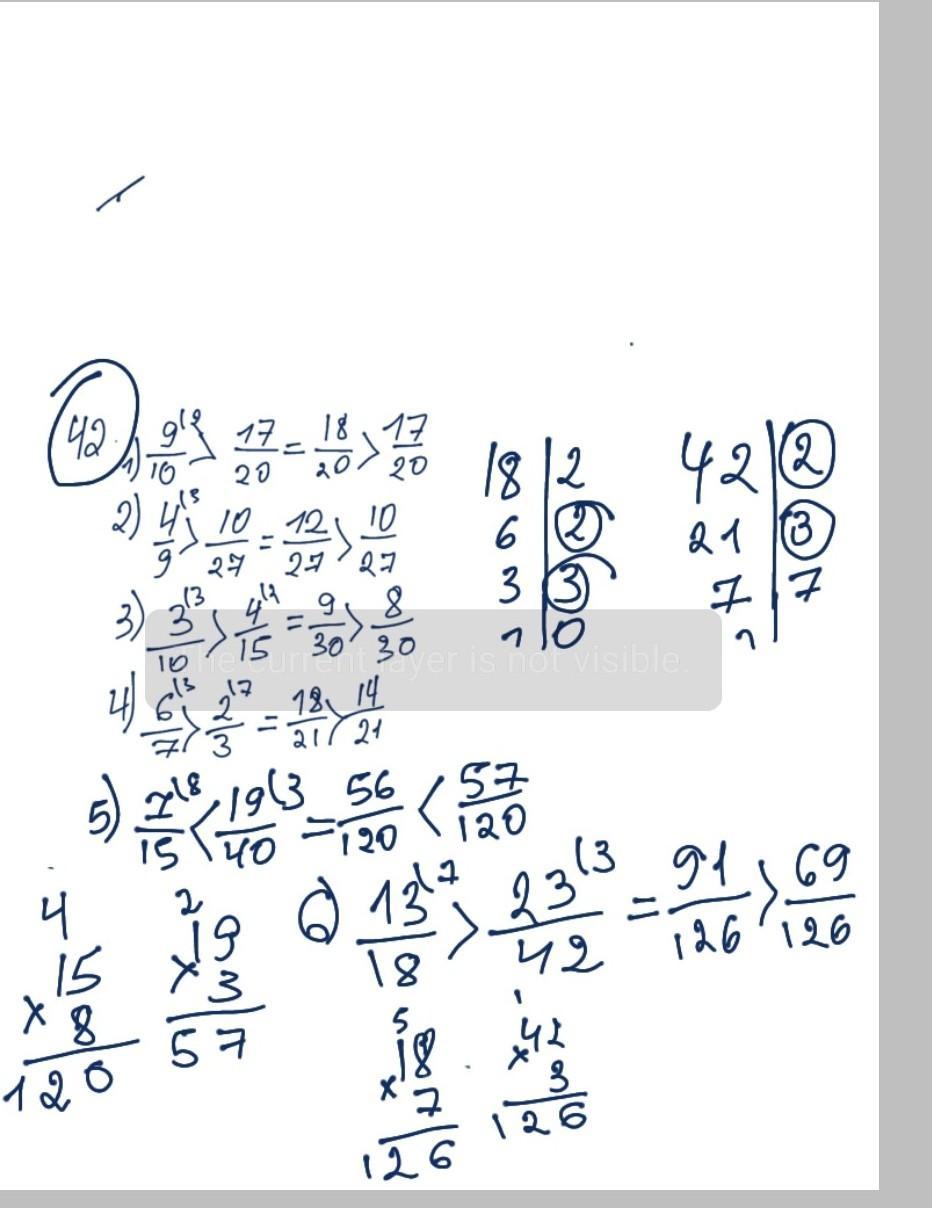 42. 1) 9(2/10 > 17/20 = 18/20 > 17/20
2) 4(3/9 > 10/27 = 12/27 > 10/27
3) 3(3/10 > 4(2/15 = 9/30 > 8/30
The current layer is not visible.
4) 6(3/7 > 2(7/3 = 18/21 > 14/21
5) 7(8/15 < 19(3/40 = 56/120 < 57/120
6) 13(7/18 > 23(3/42 = 91/126 > 69/126
18 | 2
6 | 2
3 | 3
1 | 0
42 | 2
21 | 3
7 | 7
1
4
15
× 8
120
2
19
× 3
57
5
18
× 7
126
1
42
× 3
126